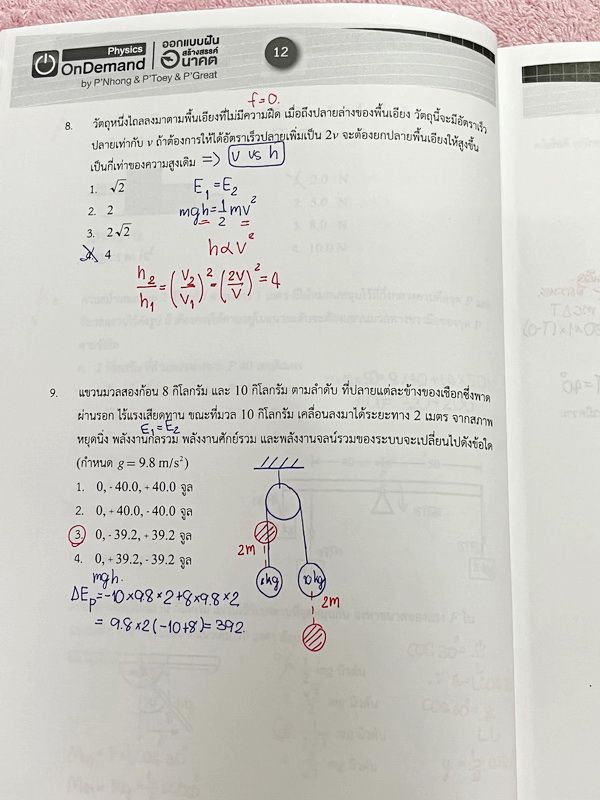 Physics
OnDemand
by P'Nhong & P'Toey & P'Great
ออกแบบฝัน
สร้างสรรค์
อนาคต
12
f=0.
8. วัตถุหนึ่งไถลลงมาตามพื้นเอียงที่ไม่มีความฝืด เมื่อถึงปลายล่างของพื้นเอียง วัตถุนี้จะมีอัตราเร็ว
ปลายเท่ากับ v ถ้าต้องการให้ได้อัตราเร็วปลายเพิ่มเป็น 2v จะต้องยกปลายพื้นเอียงให้สูงขึ้น
เป็นกี่เท่าของความสูงเดิม ⇒ v vs h
1. √2
2. 2
3. 2√2
4. 4
E₁=E₂
mgh=1/2mv²
h∝v²
h₂/h₁=(v₂/v₁)²=(2v/v)²=4
9. แขวนมวลสองก้อน 8 กิโลกรัม และ 10 กิโลกรัม ตามลำดับ ที่ปลายแต่ละข้างของเชือกซึ่งพาด
ผ่านรอก ไร้แรงเสียดทาน ขณะที่มวล 10 กิโลกรัม เคลื่อนลงมาได้ระยะทาง 2 เมตร จากสภาพ
E₁=E₂
หยุดนิ่ง พลังงานกลรวม พลังงานศักย์รวม และพลังงานจลน์รวมของระบบจะเปลี่ยนไปดังข้อใด
(กำหนด g = 9.8 m/s²)
1. 0, - 40.0, + 40.0 จูล
2. 0, + 40.0, - 40.0 จูล
3. 0, - 39.2, + 39.2 จูล
4. 0, + 39.2, - 39.2 จูล
2m
8kg
10kg
2m
mgh.
ΔEp=-10×9.8×2+8×9.8×2
= 9.8×2(-10+8)=392.